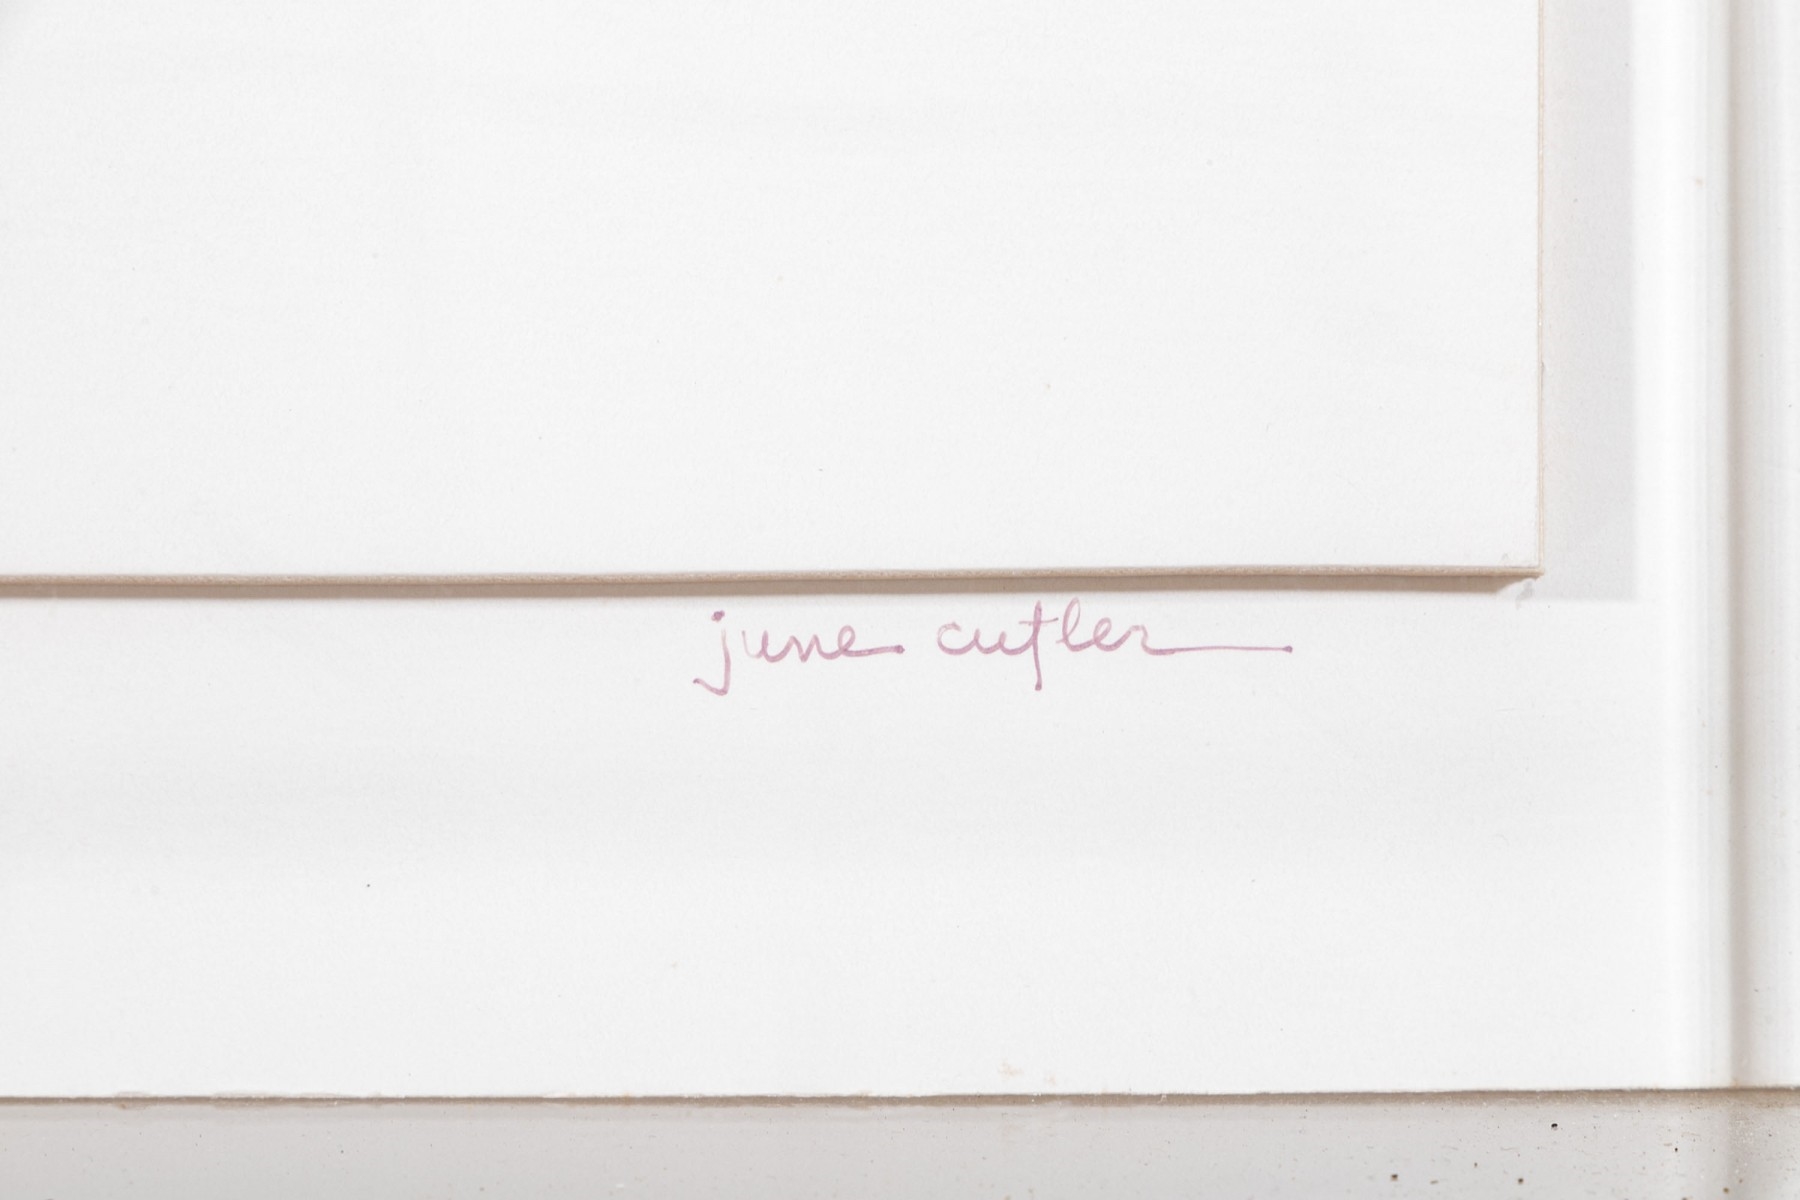 june cutler